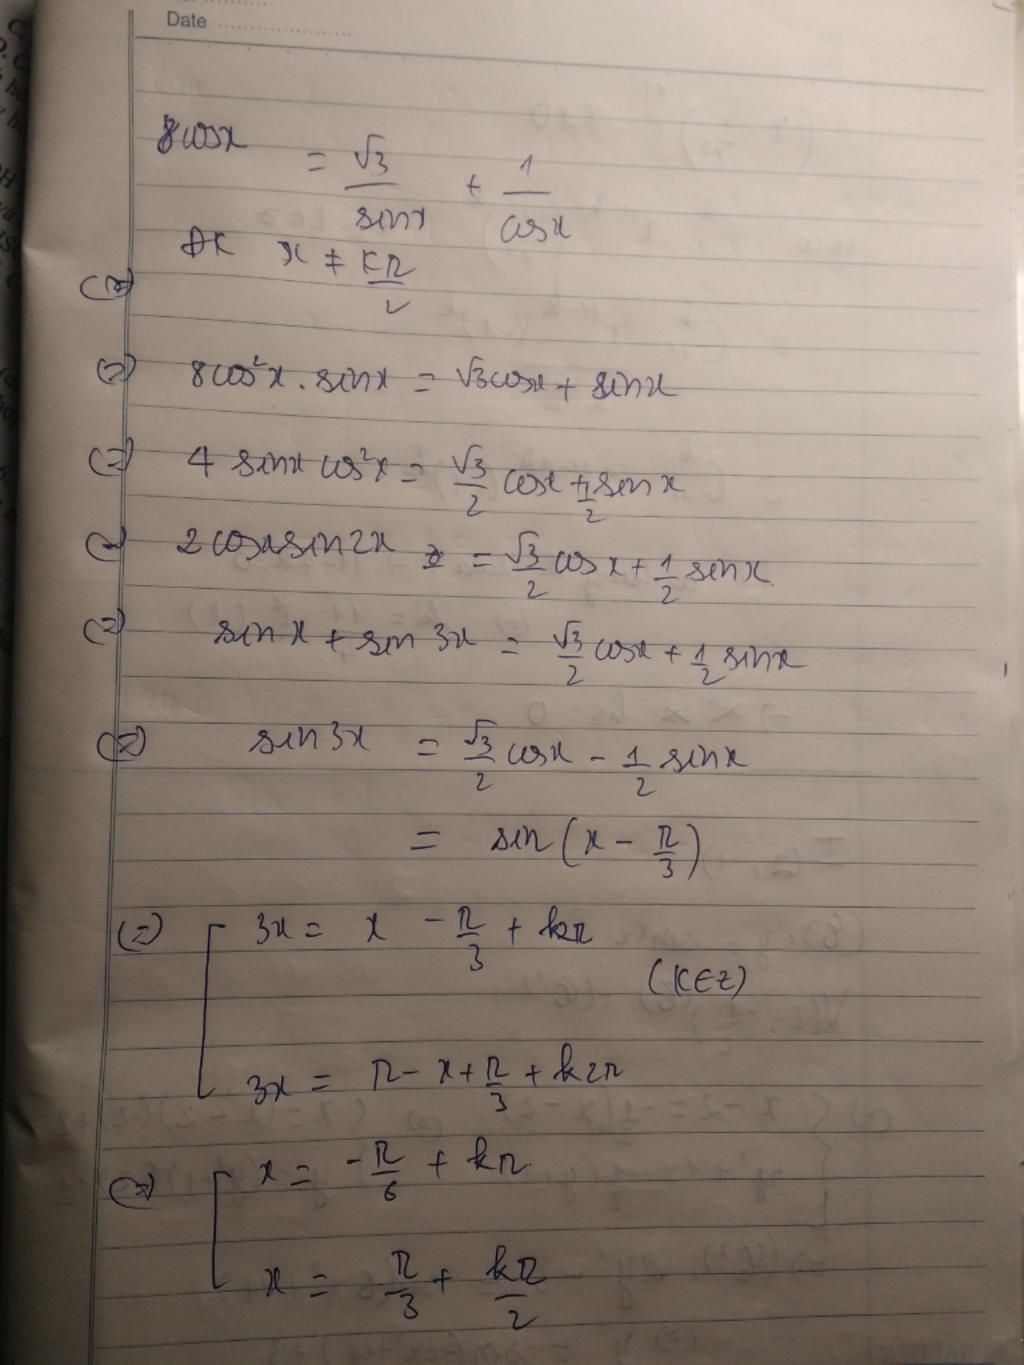 Date
8cosx = √3/sinx + 1/cosx
ĐK x ≠ kπ/2
(=)
(=) 8cos²x . sinx = √3cosx + sinx
(=) 4 sinx cos²x = √3/2 cosx + 1/2 sinx
(=) 2cosxsin2x = √3/2 cosx + 1/2 sinx
(=) sinx + sin 3x = √3/2 cosx + 1/2 sinx
(=) sin3x = √3/2 cosx - 1/2 sinx
= sin(x - π/3)
(=) [ 3x = x - π/3 + kπ
(k∈Z)
3x = π - x + π/3 + k2π
(=) [ x = -π/6 + kπ
x = π/3 + kπ/2